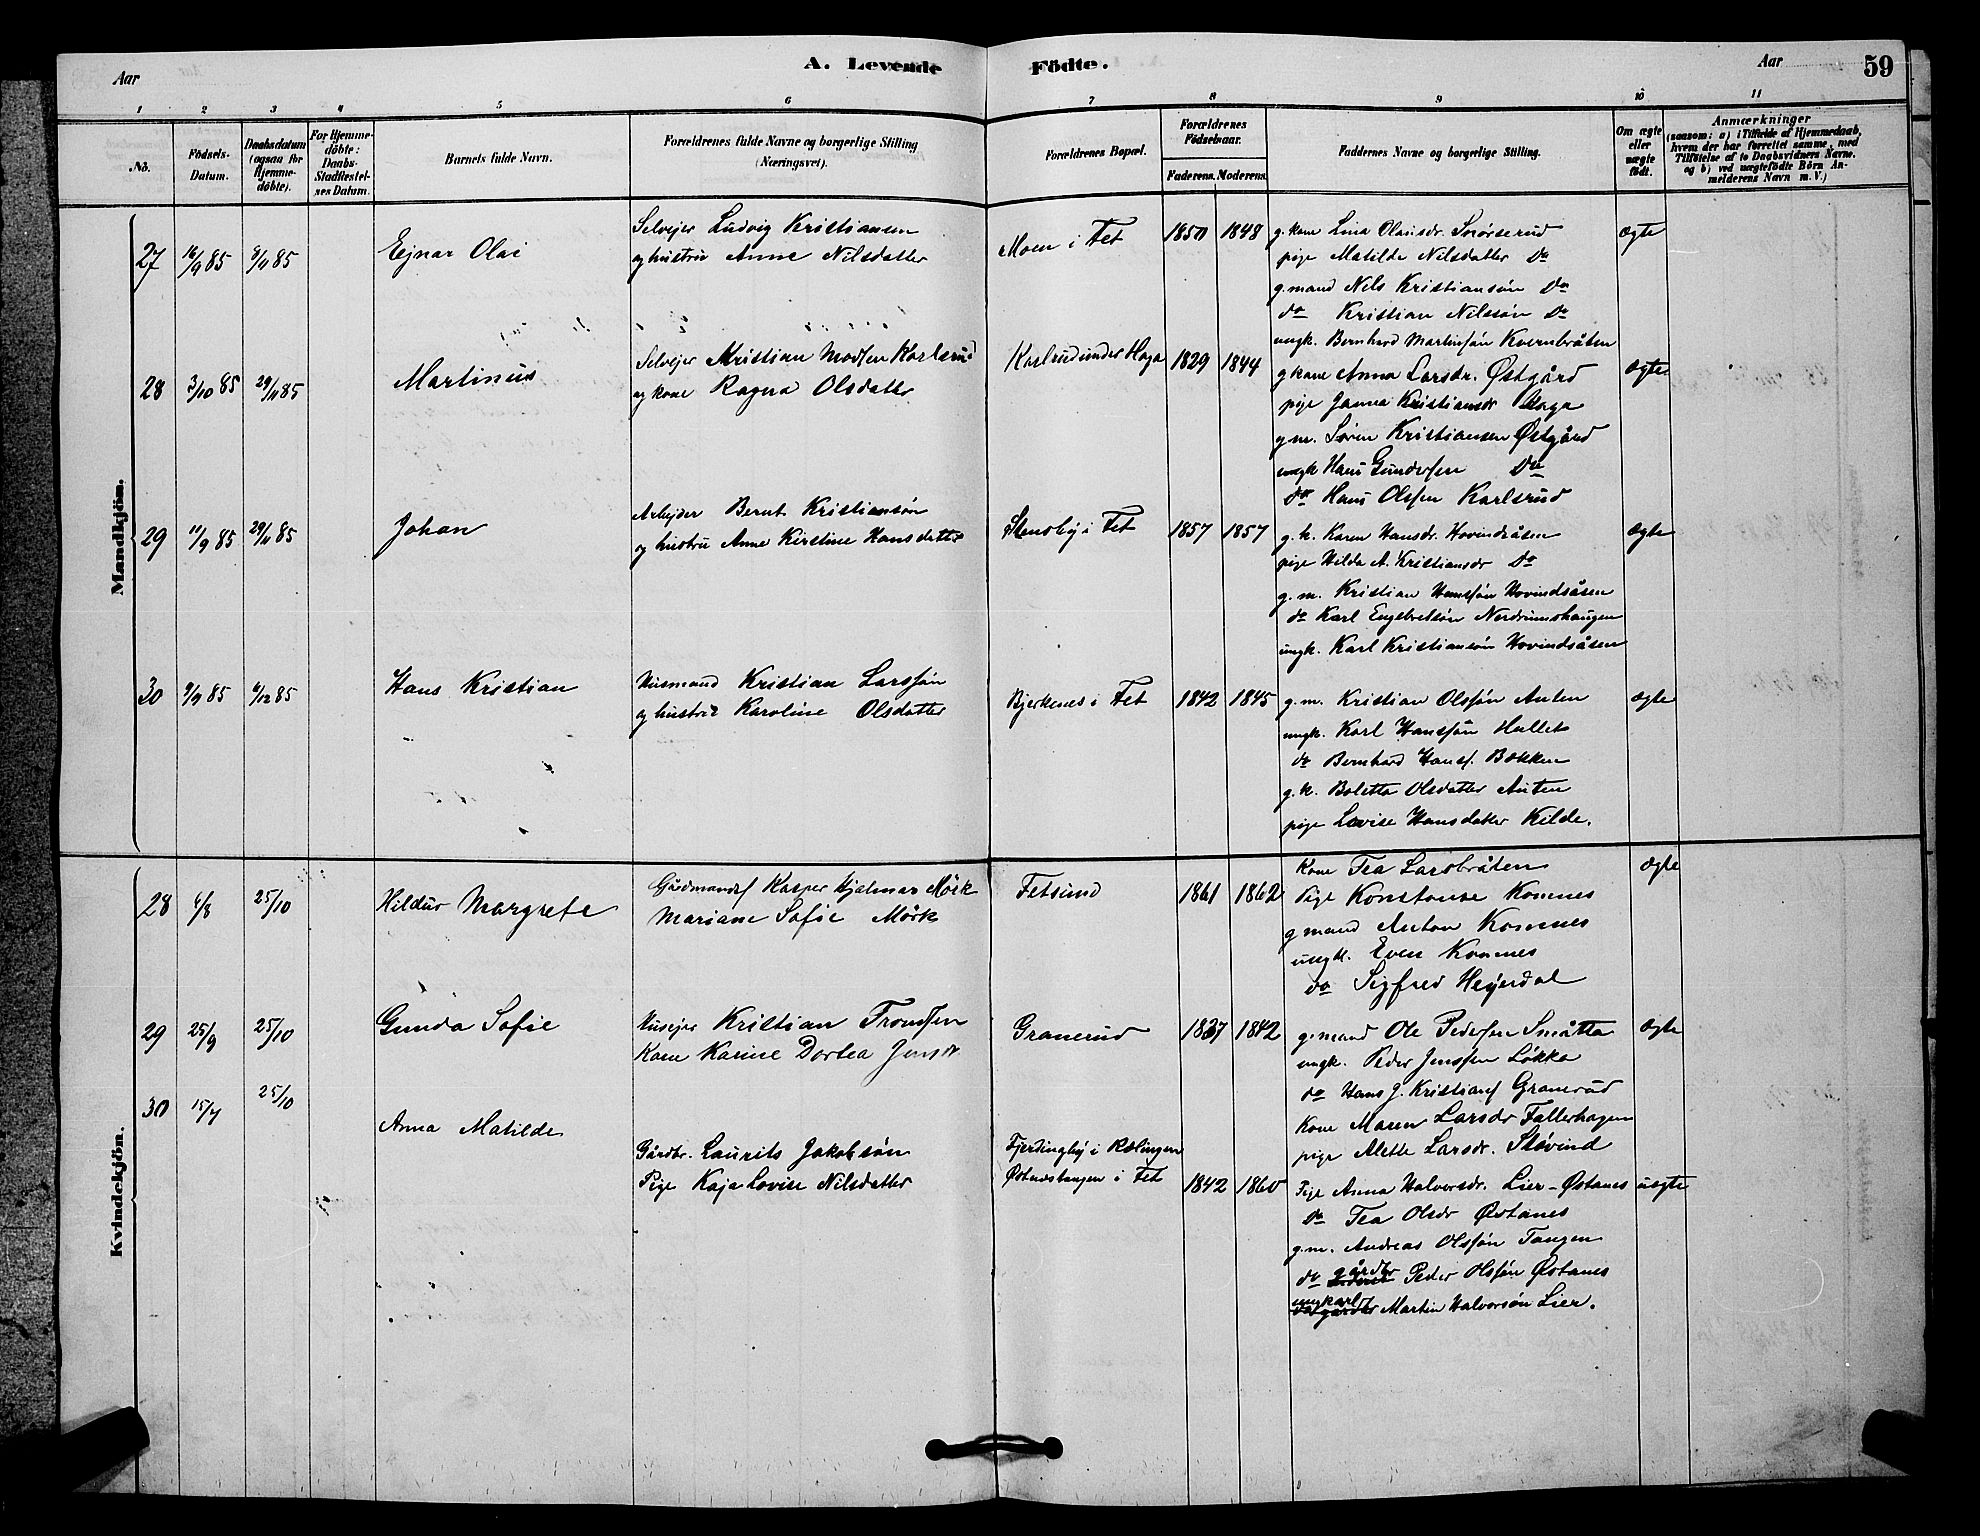 Aar
A. Levende Födte.
Aar
59
1 2 3 4 5 6 7 8 9 10 11
No.
Födsels-Datum.
Daabsdatum (ogsaa for Hjemme-döbte).
For Hjemme-döbte: Daabs-Stadfæstel-ses Datum.
Barnets fulde Navn.
Forældrenes fulde Navne og borgerlige Stilling (Næringsvei).
Forældrenes Bopæl.
Forældrenes Födselsaar.
Faderens. Moderens.
Faddernes Navne og borgerlige Stilling.
Om ægte eller uægte födt.
Anmærkninger
(saasom: a) i Tilfælde af Hjemmedaab, hvem der har forrettet samme, med Tilföielse af to Daabsvidners Navne. og b) ved uægtefödte Börn An-melderens Navn m. V.)
Mandkjön.
27 16/9 85 8/11 85 Ejnar Olai
Selvejer Ludvig Kristiansen
og hustru Anne Nilsdatter
Moen i Fet 1850 1848
g. kone Lina Olausdr. Snörserud
pige Matilde Nilsdatter do
g. mand Nils Kristiansön do
do Kristian Nilssön do
ungk. Bernhard Martinsön Kvernbråten
ægte
28 3/10 85 29/11 85 Martinus
Selvejer Kristian Madsen Karlsrud
og kone Ragna Olsdatter
Karlsrud under Haga 1829 1844
g kone Anna Larsdr. Østgård
pige Janna Kristiansdr Haga
g m. Sören Kristiansen Østgård
ungk Hans Gundersen do
do Hans Olssen Karlsrud
ægte
29 11/9 85 29/11 85 Johan
Arbejder Bernt Kristiansön
og hustru Anne Kirstine Hansdatter
Stensby i Fet 1857 1857
g. k. Karen Hansdr. Hovindsåsen
pige Hilda A. Kristiansdr do
g. m. Kristian Hanssön Hovindsåsen
do Karl Engebretsön Nerdrumshaugen
ungk. Karl Kristiansön Hovindsåsen
ægte
30 9/9 85 6/12 85 Hans Kristian
Husmand Kristian Larssön
og hustru Karoline Olsdatter
Bjerkenes i Fet 1842 1845
g. m. Kristian Olssön Auten
ungk. Karl Hanssön Hullet
do Bernhard Hanss. Bakken
g. k. Boletta Olsdatter Auten
pige Lovise Hansdatter Kilde.
ægte
Kvindekjön.
28 6/8 25/10 Hildur Margrete
Gårdmands Kasper Hjalmar Mörk
Mariane Sofie Mörk
Fetsund 1861 1862
Kone Tea Larsbråten
Pige Konstanse Komnes
g mand Anton Komnes
ungk. Even Komnes
do Sigfred Heyerdal
ægte
29 25/9 25/10 Gunda Sofie
Husejer Kristian Tronsen
Kone Karine Dortea Jensdr
Granerud 1837 1842
g. mand Ole Pedersen Småtta
ungk. Peder Jenssen Løkka
do Hans J. Kristians Granerud
Kone Maren Larsdr Fallerhagen
pige Alette Larsdr. Stövind
ægte
30 15/7 25/10 Anna Matilde
Gårdbr. Laurits Jakobsön
Pige Kaja Lovise Nilsdatter
Fjerdingby i Rælingen
Østnestangen i Fet
1842 1860
Pige Anna Halvorsdr. Lier-Østanes
do Tea Olsdr Østanes
g. m. Andreas Olssön Tangen
do gårdbr Peder Olssön Østanes
ungkarl Martin Halvorsön Lier.
uægte